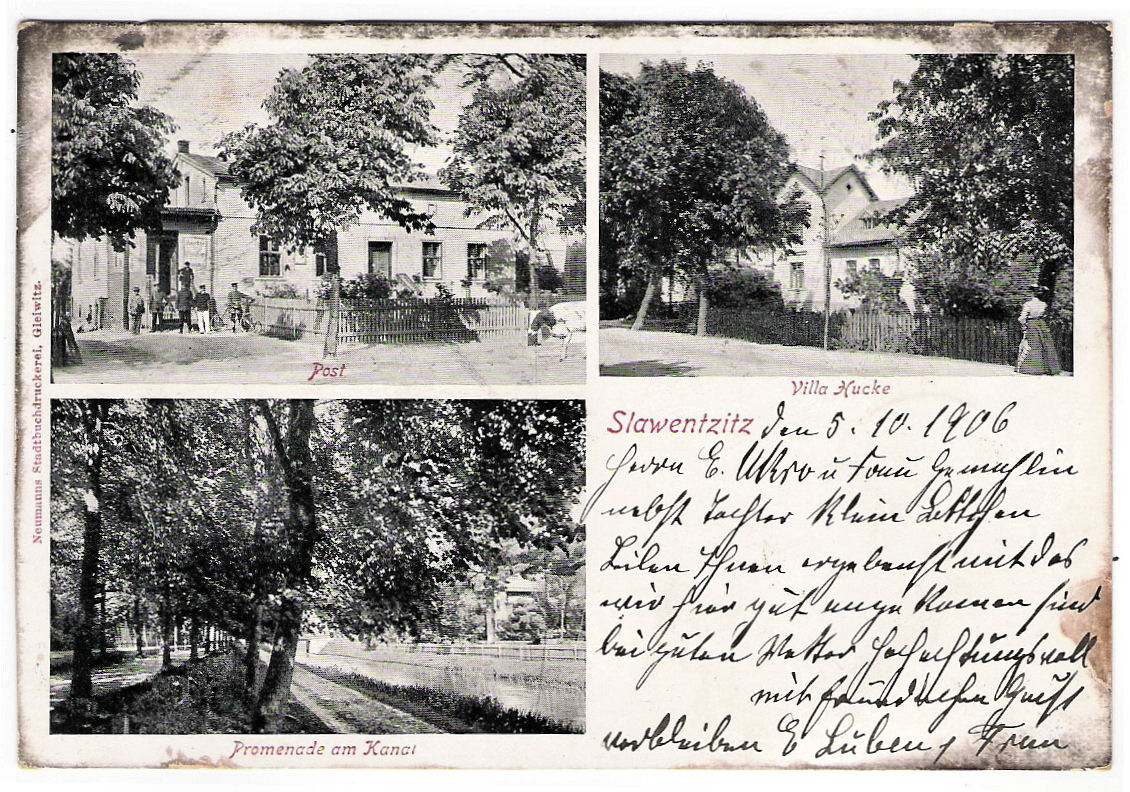 Post
Villa Hucke
Slawentzitz den 5. 10. 1906
Herrn E. u Frau Gemahlin
nebst Tochter Klein
Ihnen ergebenst mit das
wir hier gut ange Komen sind
bei guten Wetter Hochachtungsvoll
mit freundlichen Gruß
verbleiben E Luben, Frau
Promenade am Kanal
Neumanns Stadtbuchdruckerei, Gleiwitz.